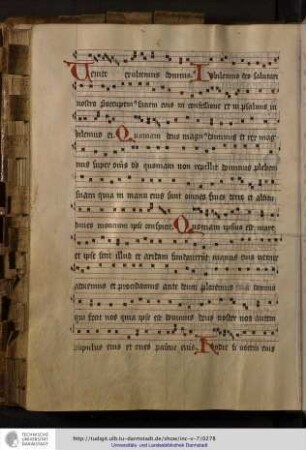 Uenite exultemus domino Iubilemus deo salutari
nostro preocupem9 faciem eius in confessione et in psalmis iu
bilemus ei Quoniam deus magn9 dominus et rex mag
nus super om̄s deos quoniam non repellit dominus plebem
suam quia in manu eius sunt omnes fines terre et altitu
dines montium ipse conspicit Quoniam ipsius est mare
et ipse fecit illud et aridam fundauerunt manus eius uenite
adoremus et procidamus ante deum ploremus coram domino
qui fecit nos quia ipse est dominus deus noster nos autem
populus eius et oues pascue eius Hodie si uocem eius
TECHNISCHE
UNIVERSITÄT
DARMSTADT
http://tudigit.ulb.tu-darmstadt.de/show/inc-v-7/0278
Universitäts- und Landesbibliothek Darmstadt